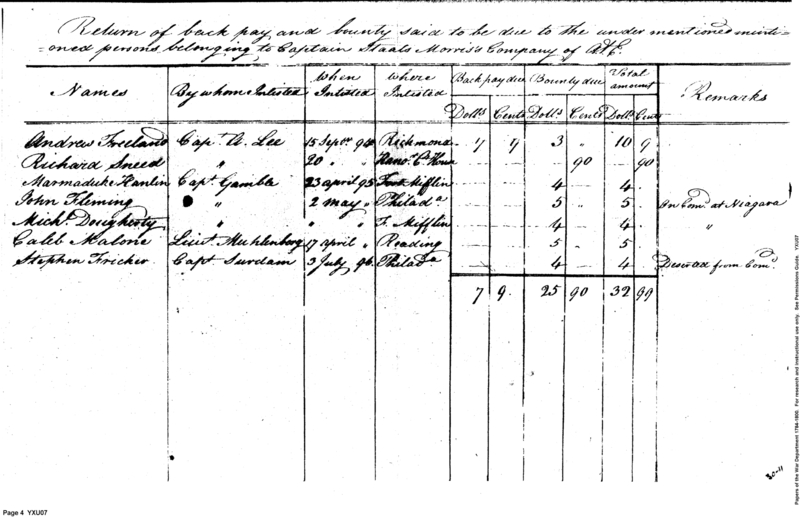 Return of back pay and bounty said to be due to the under mentioned menti-
-oned persons belonging to Captain Staats Morris's Company of A&E.
Names By whom Inlisted When Inlisted Where Inlisted Back pay due Bounty due Total amount Remarks
Dolls Cents Dolls Cents Dolls Cents
Andrew Freeland Capt. A. Lee 15 Septr. 94 Richmond 7 9 3 " 10 9
Richard Sneed " 20 " " Hano. Ct. House 90 90
Marmaduke Hanlin Capt. Gamble 23 april 95 Fort Mifflin 4 4
John Fleming " 2 may " Philada 5 " 5 On Comd. at Niagara
Michl. Dougherty " " " F. Mifflin 4 4 "
Caleb Malone Lieut. Muhlenberg 17 april " Reading 5 5
Stephen Fricker Capt Surdam 3 July 96 Philada 4 4 Deserted from Comd.
7 9. 25 90 32 99
Page 4 YXU07
Papers of the War Department 1784-1800. For research and instructional use only. See Permissions Guide. YXU07